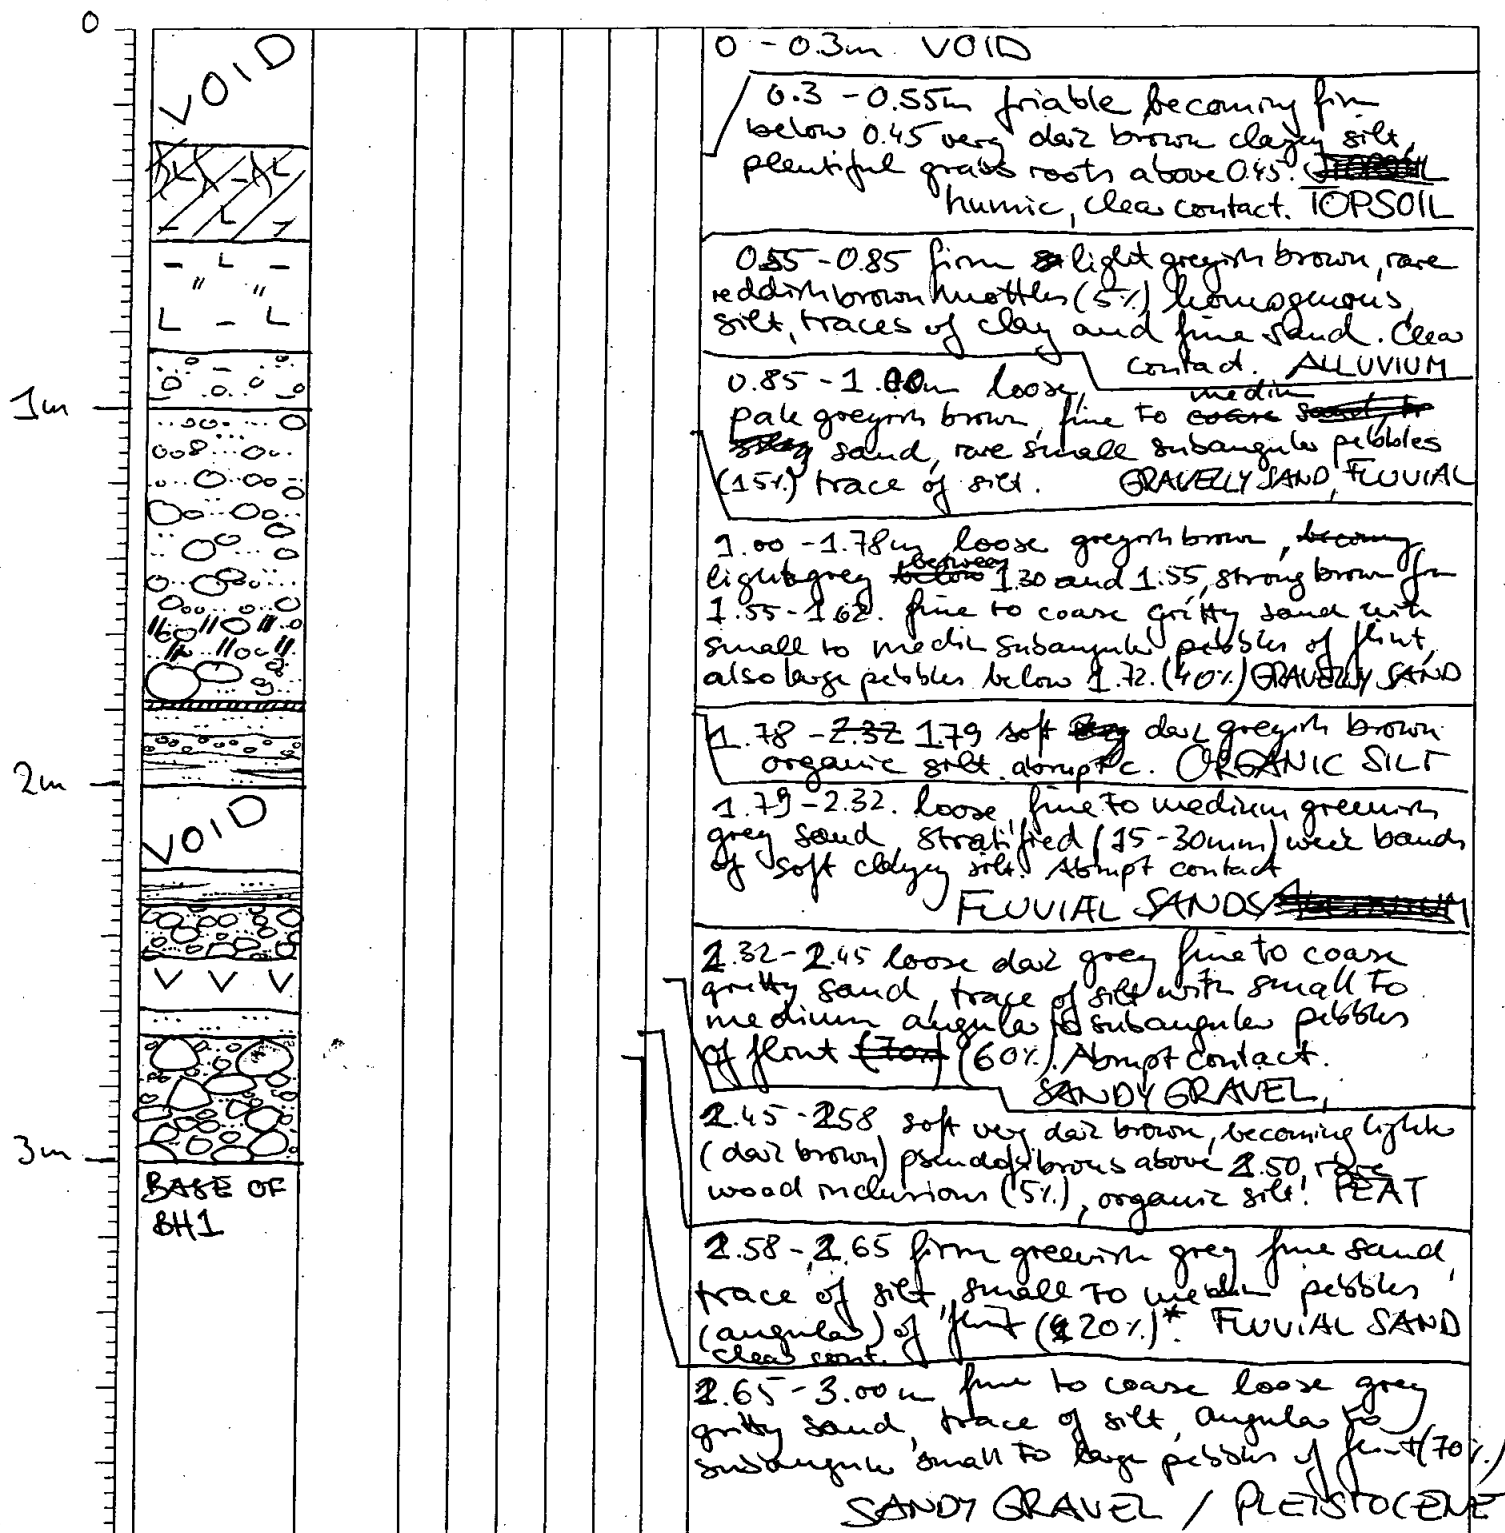 0
VOID
1m
2m
VOID
3m
BASE OF
BH1
0 - 0.3m VOID
0.3 - 0.55m friable becoming firm
below 0.45 very dark brown clayey silt,
plentiful grass roots above 0.45.
humic, clear contact. TOPSOIL
0.55 - 0.85 firm light greyish brown, rare
reddish brown mottles (5%) homogenous
silt, traces of clay and fine sand. Clear
contact. ALLUVIUM
0.85 - 1.00m loose,
pale greyish brown, fine to medium
sand, rare small subangular pebbles
(15%) trace of silt. GRAVELLY SAND, FLUVIAL
1.00 - 1.78m loose greyish brown, becoming
light grey between 1.30 and 1.55, strong brown from
1.55 - 1.62. fine to coarse gritty sand with
small to medium subangular pebbles of flint,
also large pebbles below 1.72. (40%) GRAVELLY SAND
1.78 - 2.32 1.79 soft dark greyish brown
organic silt. abrupt c. ORGANIC SILT
1.79 - 2.32. loose, fine to medium greenish
grey sand, stratified (15-30mm) weak bands
of soft clayey silt. Abrupt contact
FLUVIAL SANDS
2.32 - 2.45 loose dark grey fine to coarse
gritty sand, trace of silt with small to
medium angular to subangular pebbles
of flint (70%) (60%). Abrupt contact.
SANDY GRAVEL,
2.45 - 2.58 soft very dark brown, becoming lighter
(dark brown) pseudofibrous above 2.50, rare
wood inclusions (5%), organic silt. PEAT
2.58 - 2.65 firm greenish grey fine sand,
trace of silt, small to medium pebbles
(angular) of flint (20%)*. FLUVIAL SAND
clear cont.
2.65 - 3.00m fine to coarse loose grey
gritty sand, trace of silt, angular to
subangular small to large pebbles of flint (70%)
SANDY GRAVEL / PLEISTOCENE